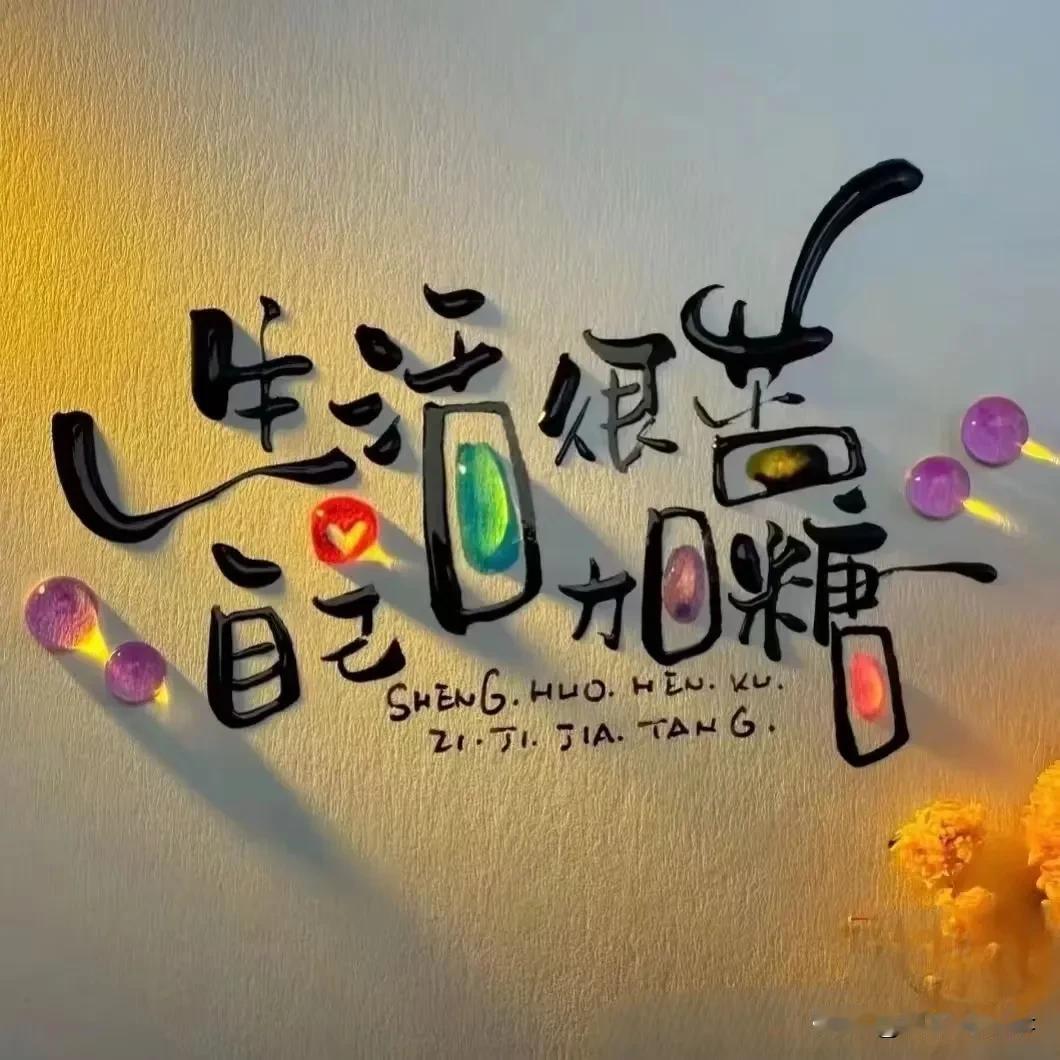 生活很苦
自己加糖
SHENG. HUO. HEN. KU.
ZI. JI. JIA. TANG.